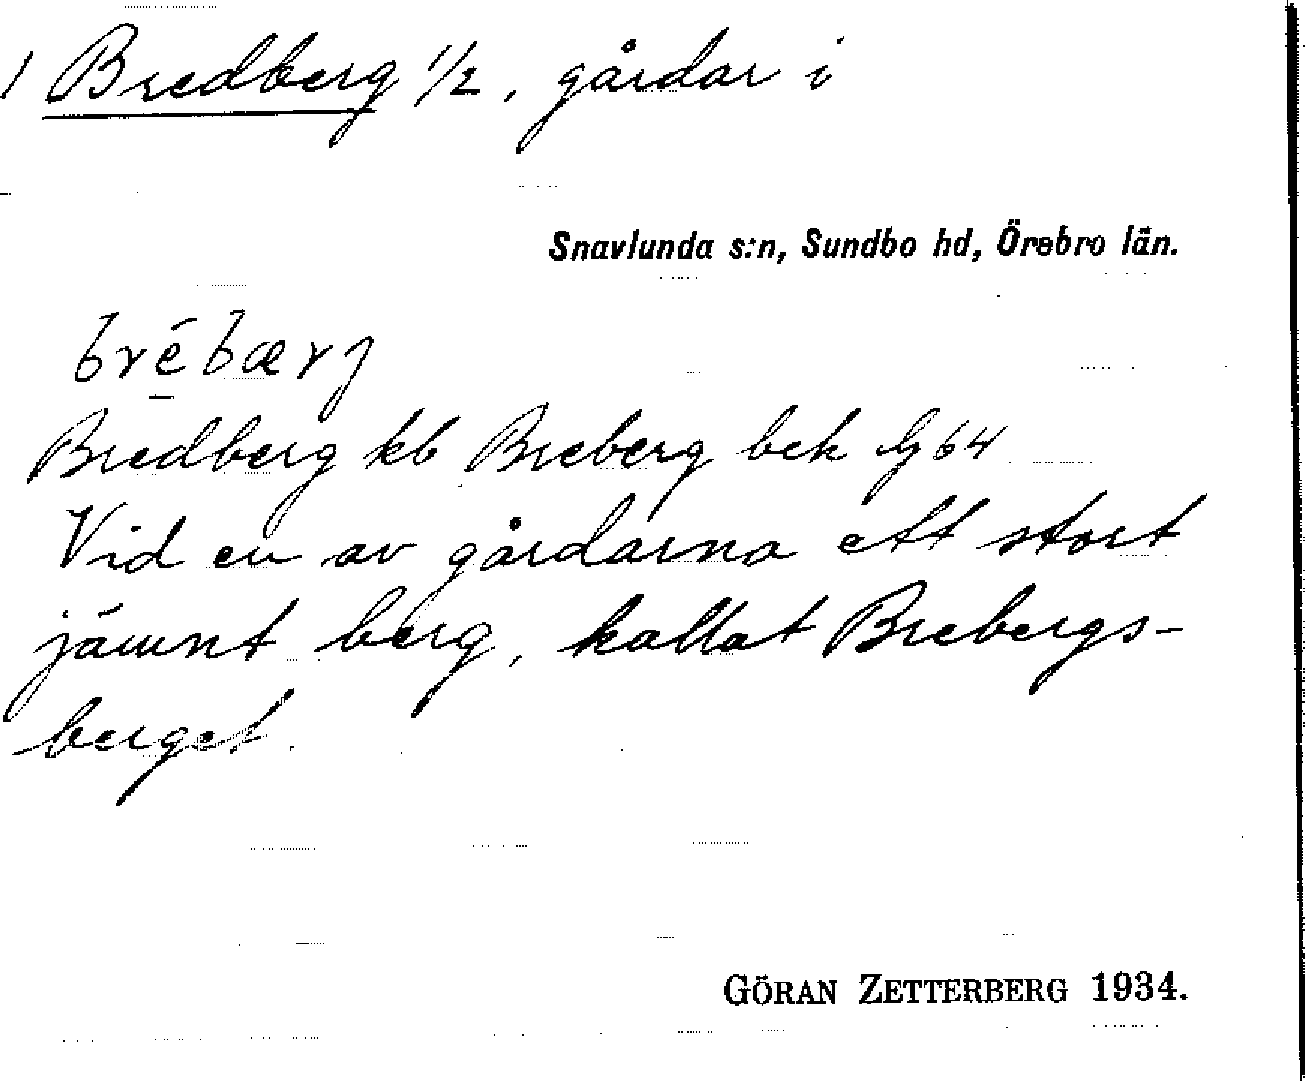 1 Bredberg 1/2, gårdar i
Snavlunda s:n, Sundbo hd, Örebro län.
brébærj
Bredberg kb Breberg bek lj 64
Vid en av gårdarna ett stort
jämnt berg, kallat Brebergs-
berget.
GÖRAN ZETTERBERG 1934.